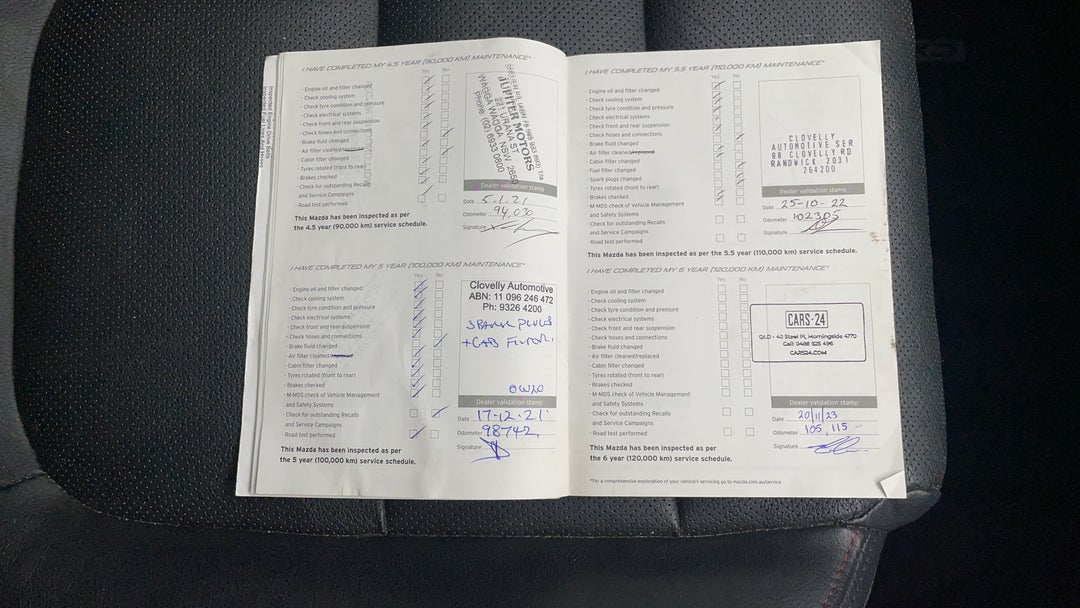 Inspected Engine Drive Belts
I HAVE COMPLETED MY 4.5 YEAR (90,000 KM) MAINTENANCE*
Yes No
· Engine oil and filter changed
· Check cooling system
· Check tyre condition and pressure
· Check electrical systems
· Check front and rear suspension
· Check hoses and connections
· Brake fluid changed
· Air filter cleaned/replaced
· Cabin filter changed
· Tyres rotated (front to rear)
· Brakes checked
· Check for outstanding Recalls
and Service Campaigns
· Road test performed
This Mazda has been inspected as per
the 4.5 year (90,000 km) service schedule.
JUPITER MOTORS
221 URANA ST
WAGGA WAGGA NSW 2650
Phone (02) 6933 0800
Dealer validation stamp
Date 5.1.21
Odometer 94,030
Signature
I HAVE COMPLETED MY 5 YEAR (100,000 KM) MAINTENANCE*
Yes No
· Engine oil and filter changed
· Check cooling system
· Check tyre condition and pressure
· Check electrical systems
· Check front and rear suspension
· Check hoses and connections
· Brake fluid changed
· Air filter cleaned/replaced
· Cabin filter changed
· Tyres rotated (front to rear)
· Brakes checked
· M-MDS check of Vehicle Management
and Safety Systems
· Check for outstanding Recalls
and Service Campaigns
· Road test performed
This Mazda has been inspected as per
the 5 year (100,000 km) service schedule.
Clovelly Automotive
ABN: 11 096 246 472
Ph: 9326 4200
SPARK PLUGS
+ CAB FILTER.
0W20
Dealer validation stamp
Date 17-12-21
Odometer 98742
Signature
I HAVE COMPLETED MY 5.5 YEAR (110,000 KM) MAINTENANCE*
Yes No
· Engine oil and filter changed
· Check cooling system
· Check tyre condition and pressure
· Check electrical systems
· Check front and rear suspension
· Check hoses and connections
· Brake fluid changed
· Air filter cleaned/replaced
· Cabin filter changed
· Fuel filter changed
· Spark plugs changed
· Tyres rotated (front to rear)
· Brakes checked
· M-MDS check of Vehicle Management
and Safety Systems
· Check for outstanding Recalls
and Service Campaigns
· Road test performed
This Mazda has been inspected as per the 5.5 year (110,000 km) service schedule.
CLOVELLY
AUTOMOTIVE SER
88 CLOVELLY RD
RANDWICK 2031
264200
Dealer validation stamp
Date 25-10-22
Odometer 102305
Signature
I HAVE COMPLETED MY 6 YEAR (120,000 KM) MAINTENANCE*
Yes No
· Engine oil and filter changed
· Check cooling system
· Check tyre condition and pressure
· Check electrical systems
· Check front and rear suspension
· Check hoses and connections
· Brake fluid changed
· Air filter cleaned/replaced
· Cabin filter changed
· Tyres rotated (front to rear)
· Brakes checked
· M-MDS check of Vehicle Management
and Safety Systems
· Check for outstanding Recalls
and Service Campaigns
· Road test performed
This Mazda has been inspected as per
the 6 year (120,000 km) service schedule.
CARS·24
QLD - 40 Steel Pl, Morningside 4170
Call: 0488 825 496
CARS24.COM
Dealer validation stamp
Date 20/11/23
Odometer 105,115
Signature
*For a comprehensive explanation of your vehicle's servicing go to mazda.com.au/service